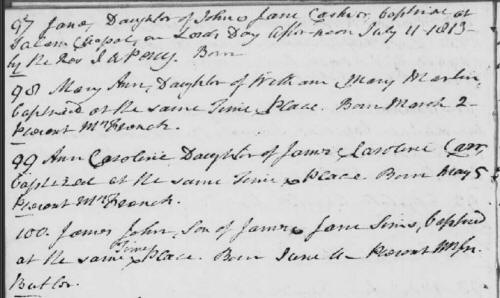 97 Jane, Daughter of John & Jane Cashor, baptized at
Salem Chapel, on Lords Day afternoon July 11 - 1813 -
by the Rev J A Percy. Born
98 Mary Ann, Daughter of William & Mary Martin,
baptized at the same Time & Place. Born March 2 -
Present Mrs French.
99 Ann Caroline Daughter of James & Caroline Carr,
baptized at the same Time & Place. Born May 5
Present Mrs French.
100. James John, Son of James & Jane Sims, baptized
at the same Time & Place. Born June 4 - Present
Butler.